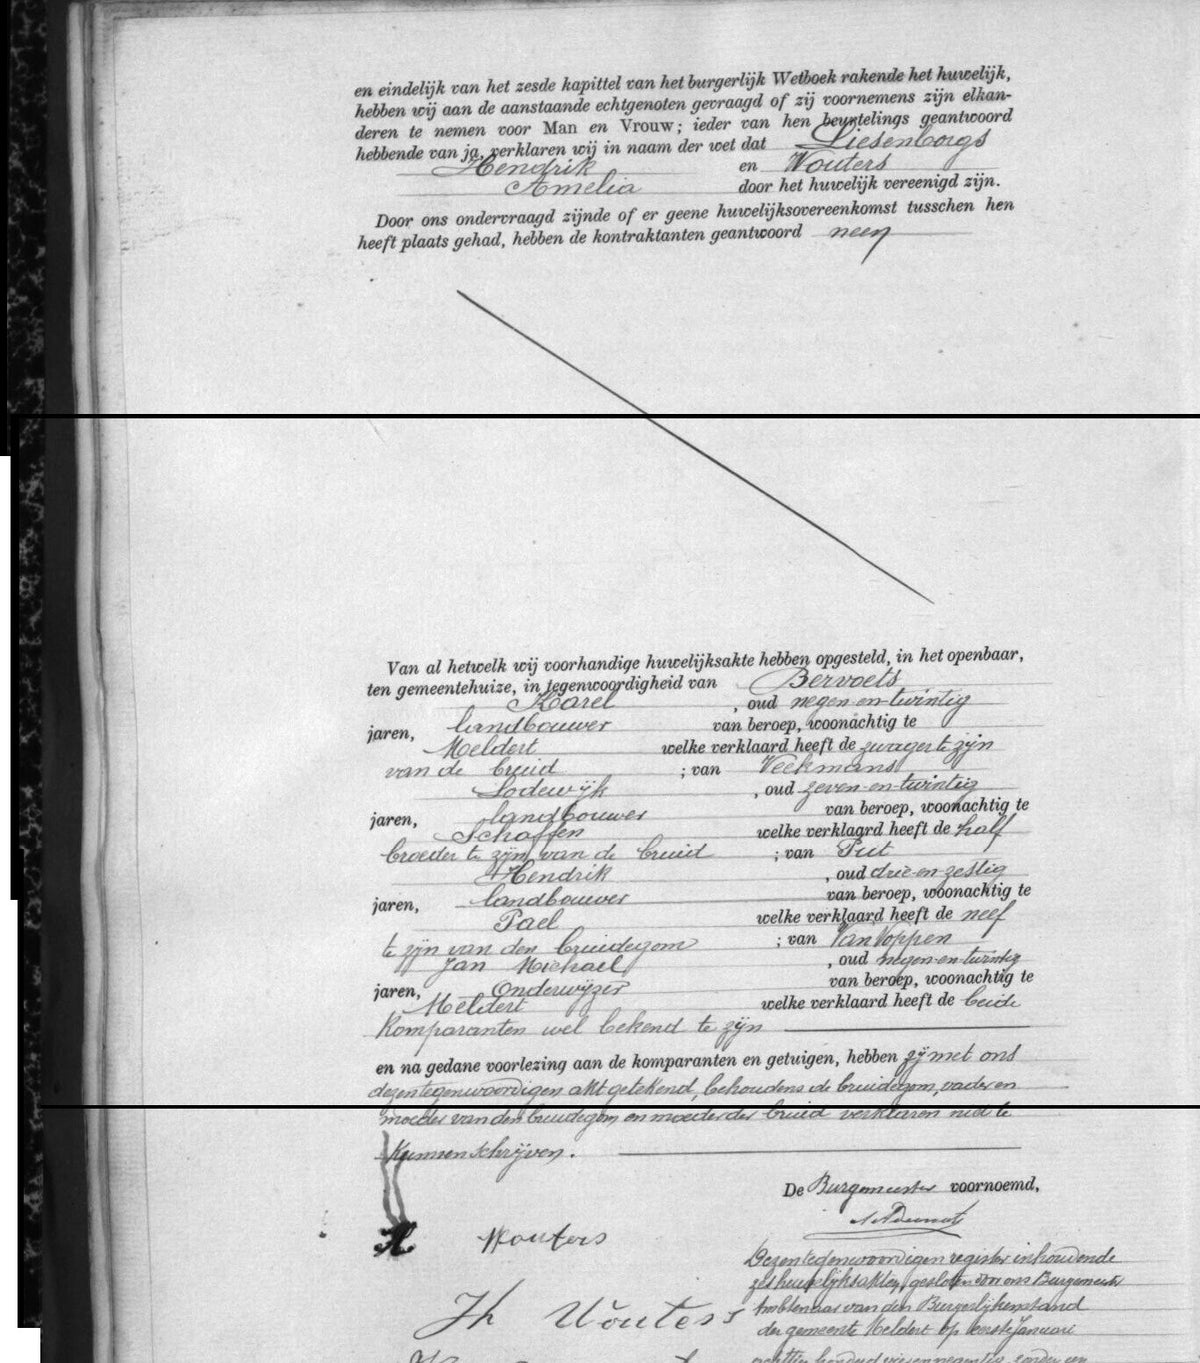 en eindelijk van het zesde kapittel van het burgerlijk Wetboek rakende het huwelijk,
hebben wij aan de aanstaande echtgenoten gevraagd of zij voornemens zijn elkan-
deren te nemen voor Man en Vrouw; ieder van hen beurtelings geantwoord
hebbende van ja, verklaren wij in naam der wet dat Liesenborgs
Hendrik en Wouters
Amelia door het huwelijk vereenigd zijn.
Door ons ondervraagd zijnde of er geene huwelijksovereenkomst tusschen hen
heeft plaats gehad, hebben de kontraktanten geantwoord neen
Van al hetwelk wij voorhandige huwelijksakte hebben opgesteld, in het openbaar,
ten gemeentehuize, in tegenwoordigheid van Bervoets
Karel , oud negen-en-twintig
jaren, landbouwer van beroep, woonachtig te
Meldert welke verklaard heeft de zwager te zijn
van de bruid ; van Veekmans
Lodewijk , oud zeven-en-twintig
jaren, landbouwer van beroep, woonachtig te
Schaffen welke verklaard heeft de half
broeder te zijn van de bruid ; van Put
Hendrik , oud drie-en-zestig
jaren, landbouwer van beroep, woonachtig te
Pael welke verklaard heeft de neef
te zijn van den bruidegom ; van Van Voppen
Jan Michael , oud negen-en-twintig
jaren, Onderwijzer van beroep, woonachtig te
Meldert welke verklaard heeft de beide
Komparanten wel bekend te zijn
en na gedane voorlezing aan de komparanten en getuigen, hebben zij met ons
dezen tegenwoordigen akt getekend, behoudens de bruidegom, vader en
moeder van den bruidegom en moeder der bruid verklaren niet te
Kunnen schrijven.
De Burgemeester voornoemd,
Wouters
Dezen tegenwoordigen register inhoudende
zes huwelijksakten, gesloten door ons Burgemeester
Ambtenaar van den Burgerlijkenstand
der gemeente Meldert op eerste Januari
Jh Wouters